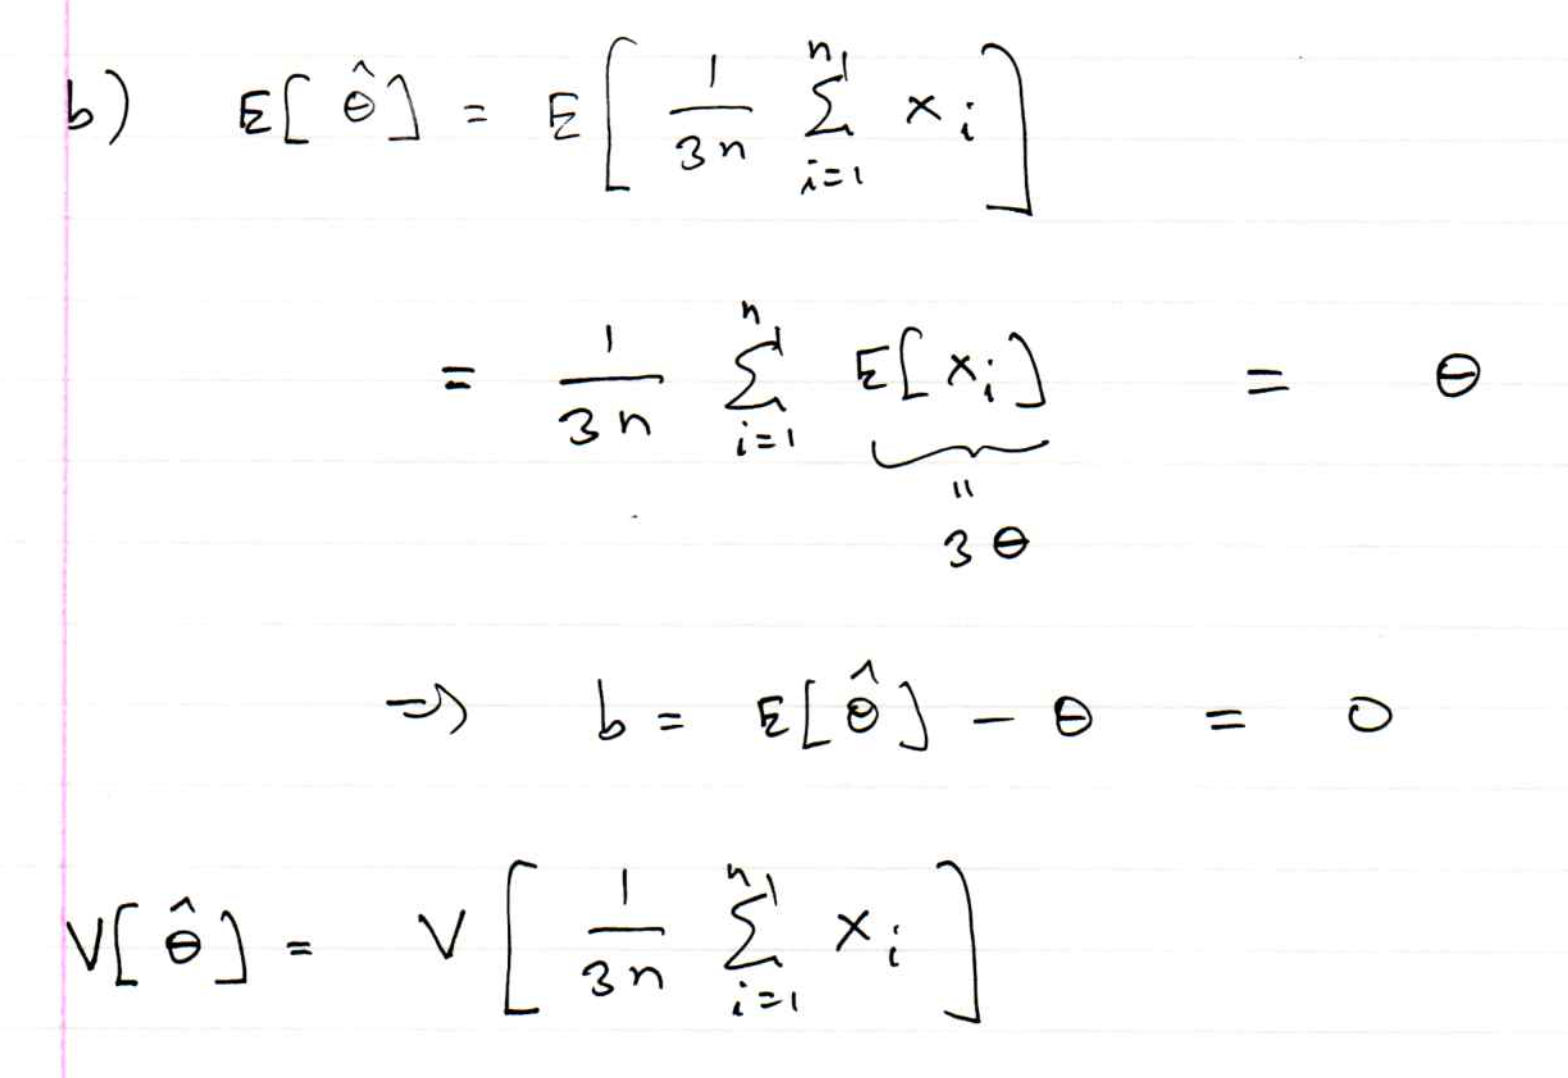 b) E[θ̂] = E[ 1/3n ∑_{i=1}^{n} x_i ]
= 1/3n ∑_{i=1}^{n} E[x_i] = θ
"
3θ
⇒ b = E[θ̂] - θ = 0
V[θ̂] = V[ 1/3n ∑_{i=1}^{n} x_i ]